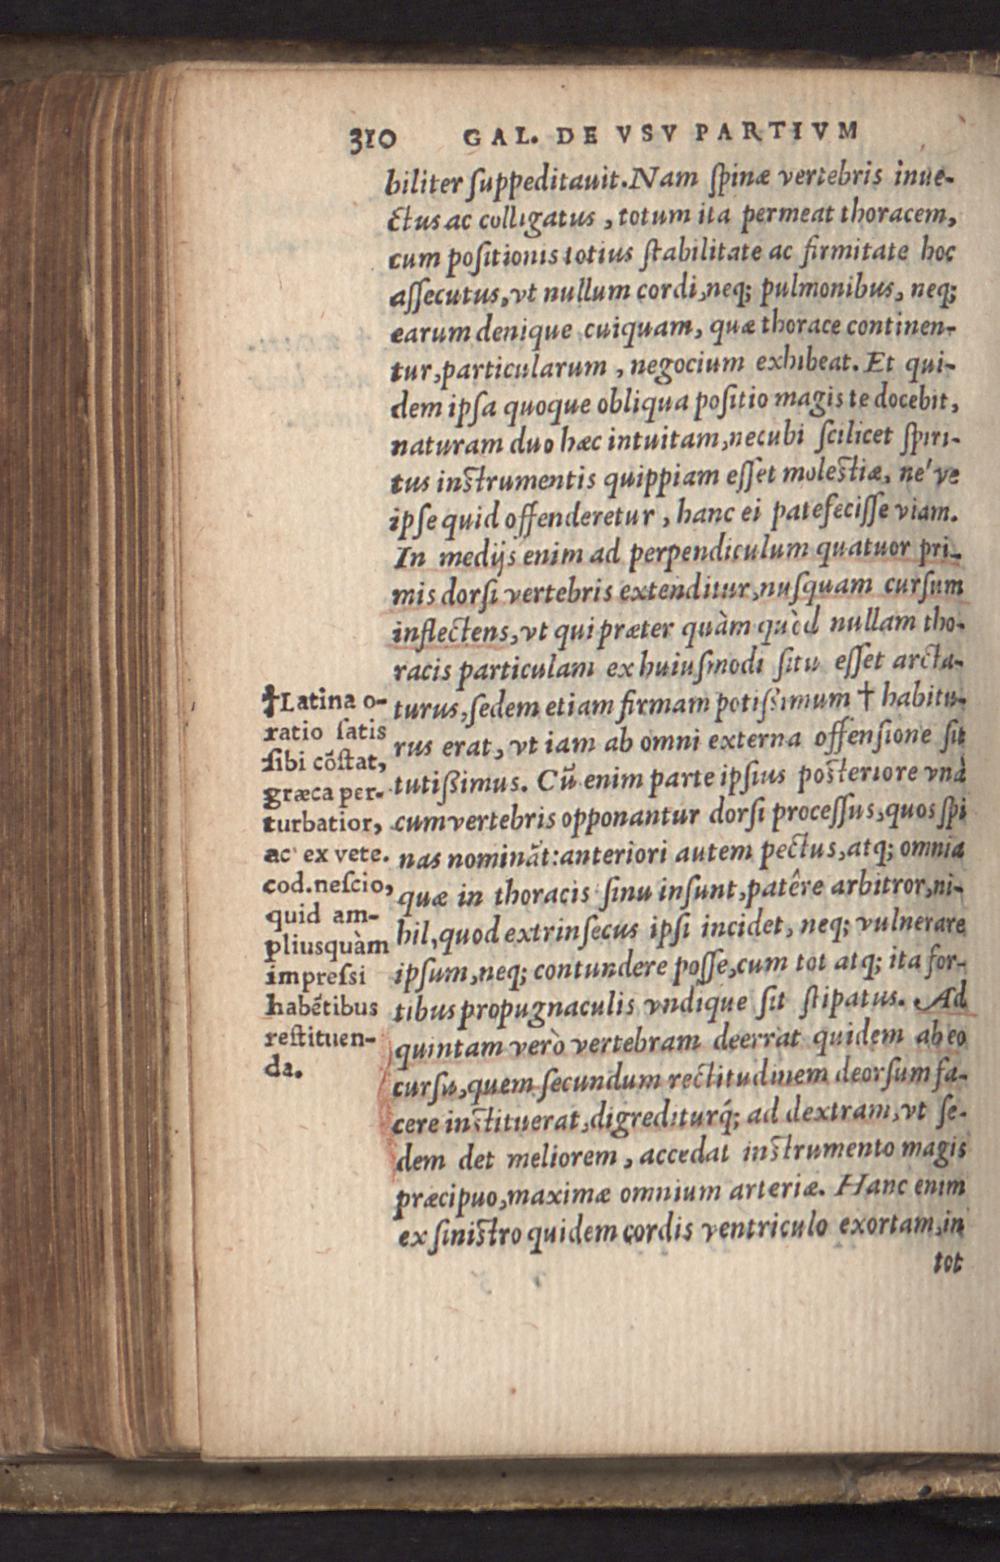 310 GAL. DE VSV PARTIVM
biliter ſuppeditauit. Nam ſpinæ vertebris inue-
ctus ac colligatus, totum ita permeat thoracem,
cum poſitionis totius ſtabilitate ac firmitate hoc
aſſecutus, vt nullum cordi, neq; pulmonibus, neq;
earum denique cuiquam, quæ thorace continen-
tur, particularum, negocium exhibeat. Et qui-
dem ipſa quoque obliqua poſitio magis te docebit,
naturam duo hæc intuitam, necubi ſcilicet ſpiri-
tus inſtrumentis quippiam eſſet moleſtiæ, ne've
ipſe quid offenderetur, hanc ei patefeciſſe viam.
In medijs enim ad perpendiculum quatuor pri-
mis dorſi vertebris extenditur, nuſquam curſum
inflectens, vt qui præter quàm quòd nullam tho-
racis particulam ex huiuſmodi ſitu eſſet arcta-
turus, ſedem etiam firmam potiſſimum † habitu-
rus erat, vt iam ab omni externa offenſione ſit
tutiſſimus. Cũ enim parte ipſius poſteriore vnà
cum vertebris opponantur dorſi proceſſus, quos ſpi
nas nominãt: anteriori autem pectus, atq; omnia
quæ in thoracis ſinu inſunt, patêre arbitror, ni-
hil, quod extrinſecus ipſi incidet, neq; vulnerare
ipſum, neq; contundere poſſe, cum tot atq; ita for-
tibus propugnaculis vndique ſit ſtipatus. Ad
quintam verò vertebram deerrat quidem ab eo
curſu, quem ſecundum rectitudinem deorſum fa-
cere inſtituerat, digrediturq́; ad dextram, vt ſe-
dem det meliorem, accedat inſtrumento magis
præcipuo, maximæ omnium arteriæ. Hanc enim
ex ſiniſtro quidem cordis ventriculo exortam, in
tot
†Latina o-
ratio ſatis
ſibi cõſtat,
græca per-
turbatior,
ac ex vete.
cod. neſcio,
quid am-
pliusquàm
impreſsi
habẽtibus
reſtituen-
da.